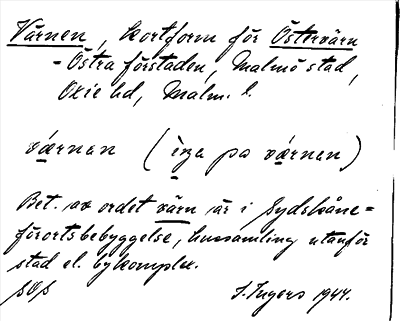 Värnen, kortform för Östervärn
- Östra förstaden, Malmö stad,
Oxie hd, Malm. l.
värnan (inga pa värnan)
Bet. av ordet värn är i Sydskåne=
förortsbebyggelse, hussamling utanför
stad el. bykomplex.
I. Ingers 1944.